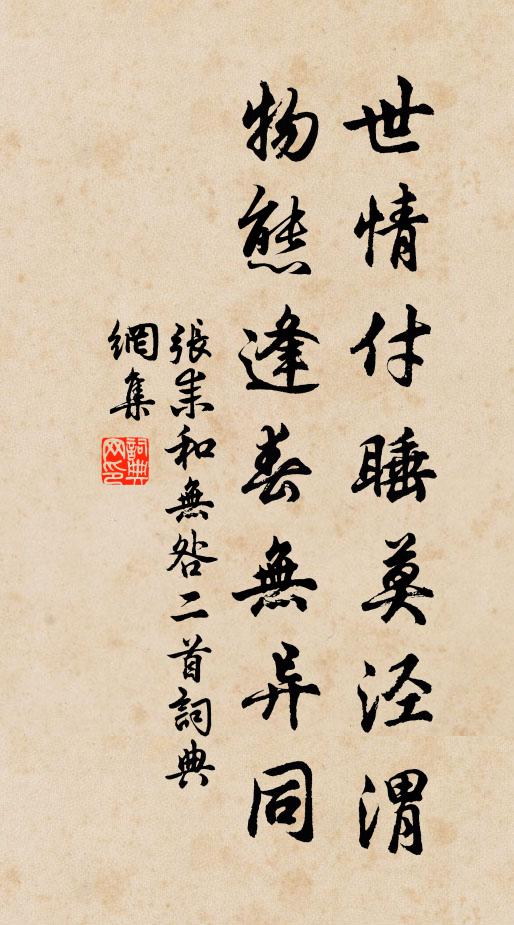 世情付睡莫泾渭
物態逢春無异同
張耒和無咎二首詞典
網集
詞典網印